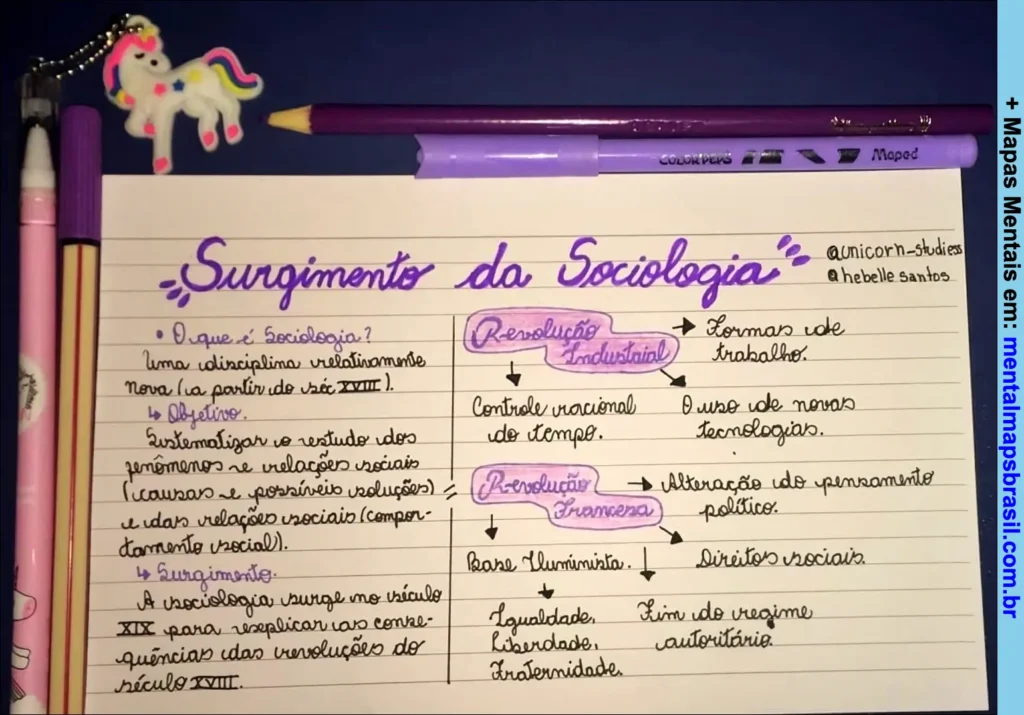 COLOR'PEPS Maped
Surgimento da Sociologia
@unicorn_studiess
@hebellesantos
• O que é Sociologia?
Uma disciplina relativamente
nova (a partir do séc XVIII).
↳ Objetivo.
Sistematizar o estudo dos
fenômenos e relações sociais
(causas e possíveis soluções)
e das relações sociais (compor-
tamento social).
↳ Surgimento.
A sociologia surge no século
XIX para explicar as conse-
quências das revoluções do
século XVIII.
Revolução
Industaial
→ Formas de
trabalho.
Controle racional
do tempo.
O uso de novas
tecnologias.
Revolução
Francesa
→ Alteração do pensamento
político.
Base Iluminista.
Direitos sociais.
Igualdade,
Liberdade,
Fraternidade.
Fim do regime
autoritário.
+ Mapas Mentais em: mentalmapsbrasil.com.br